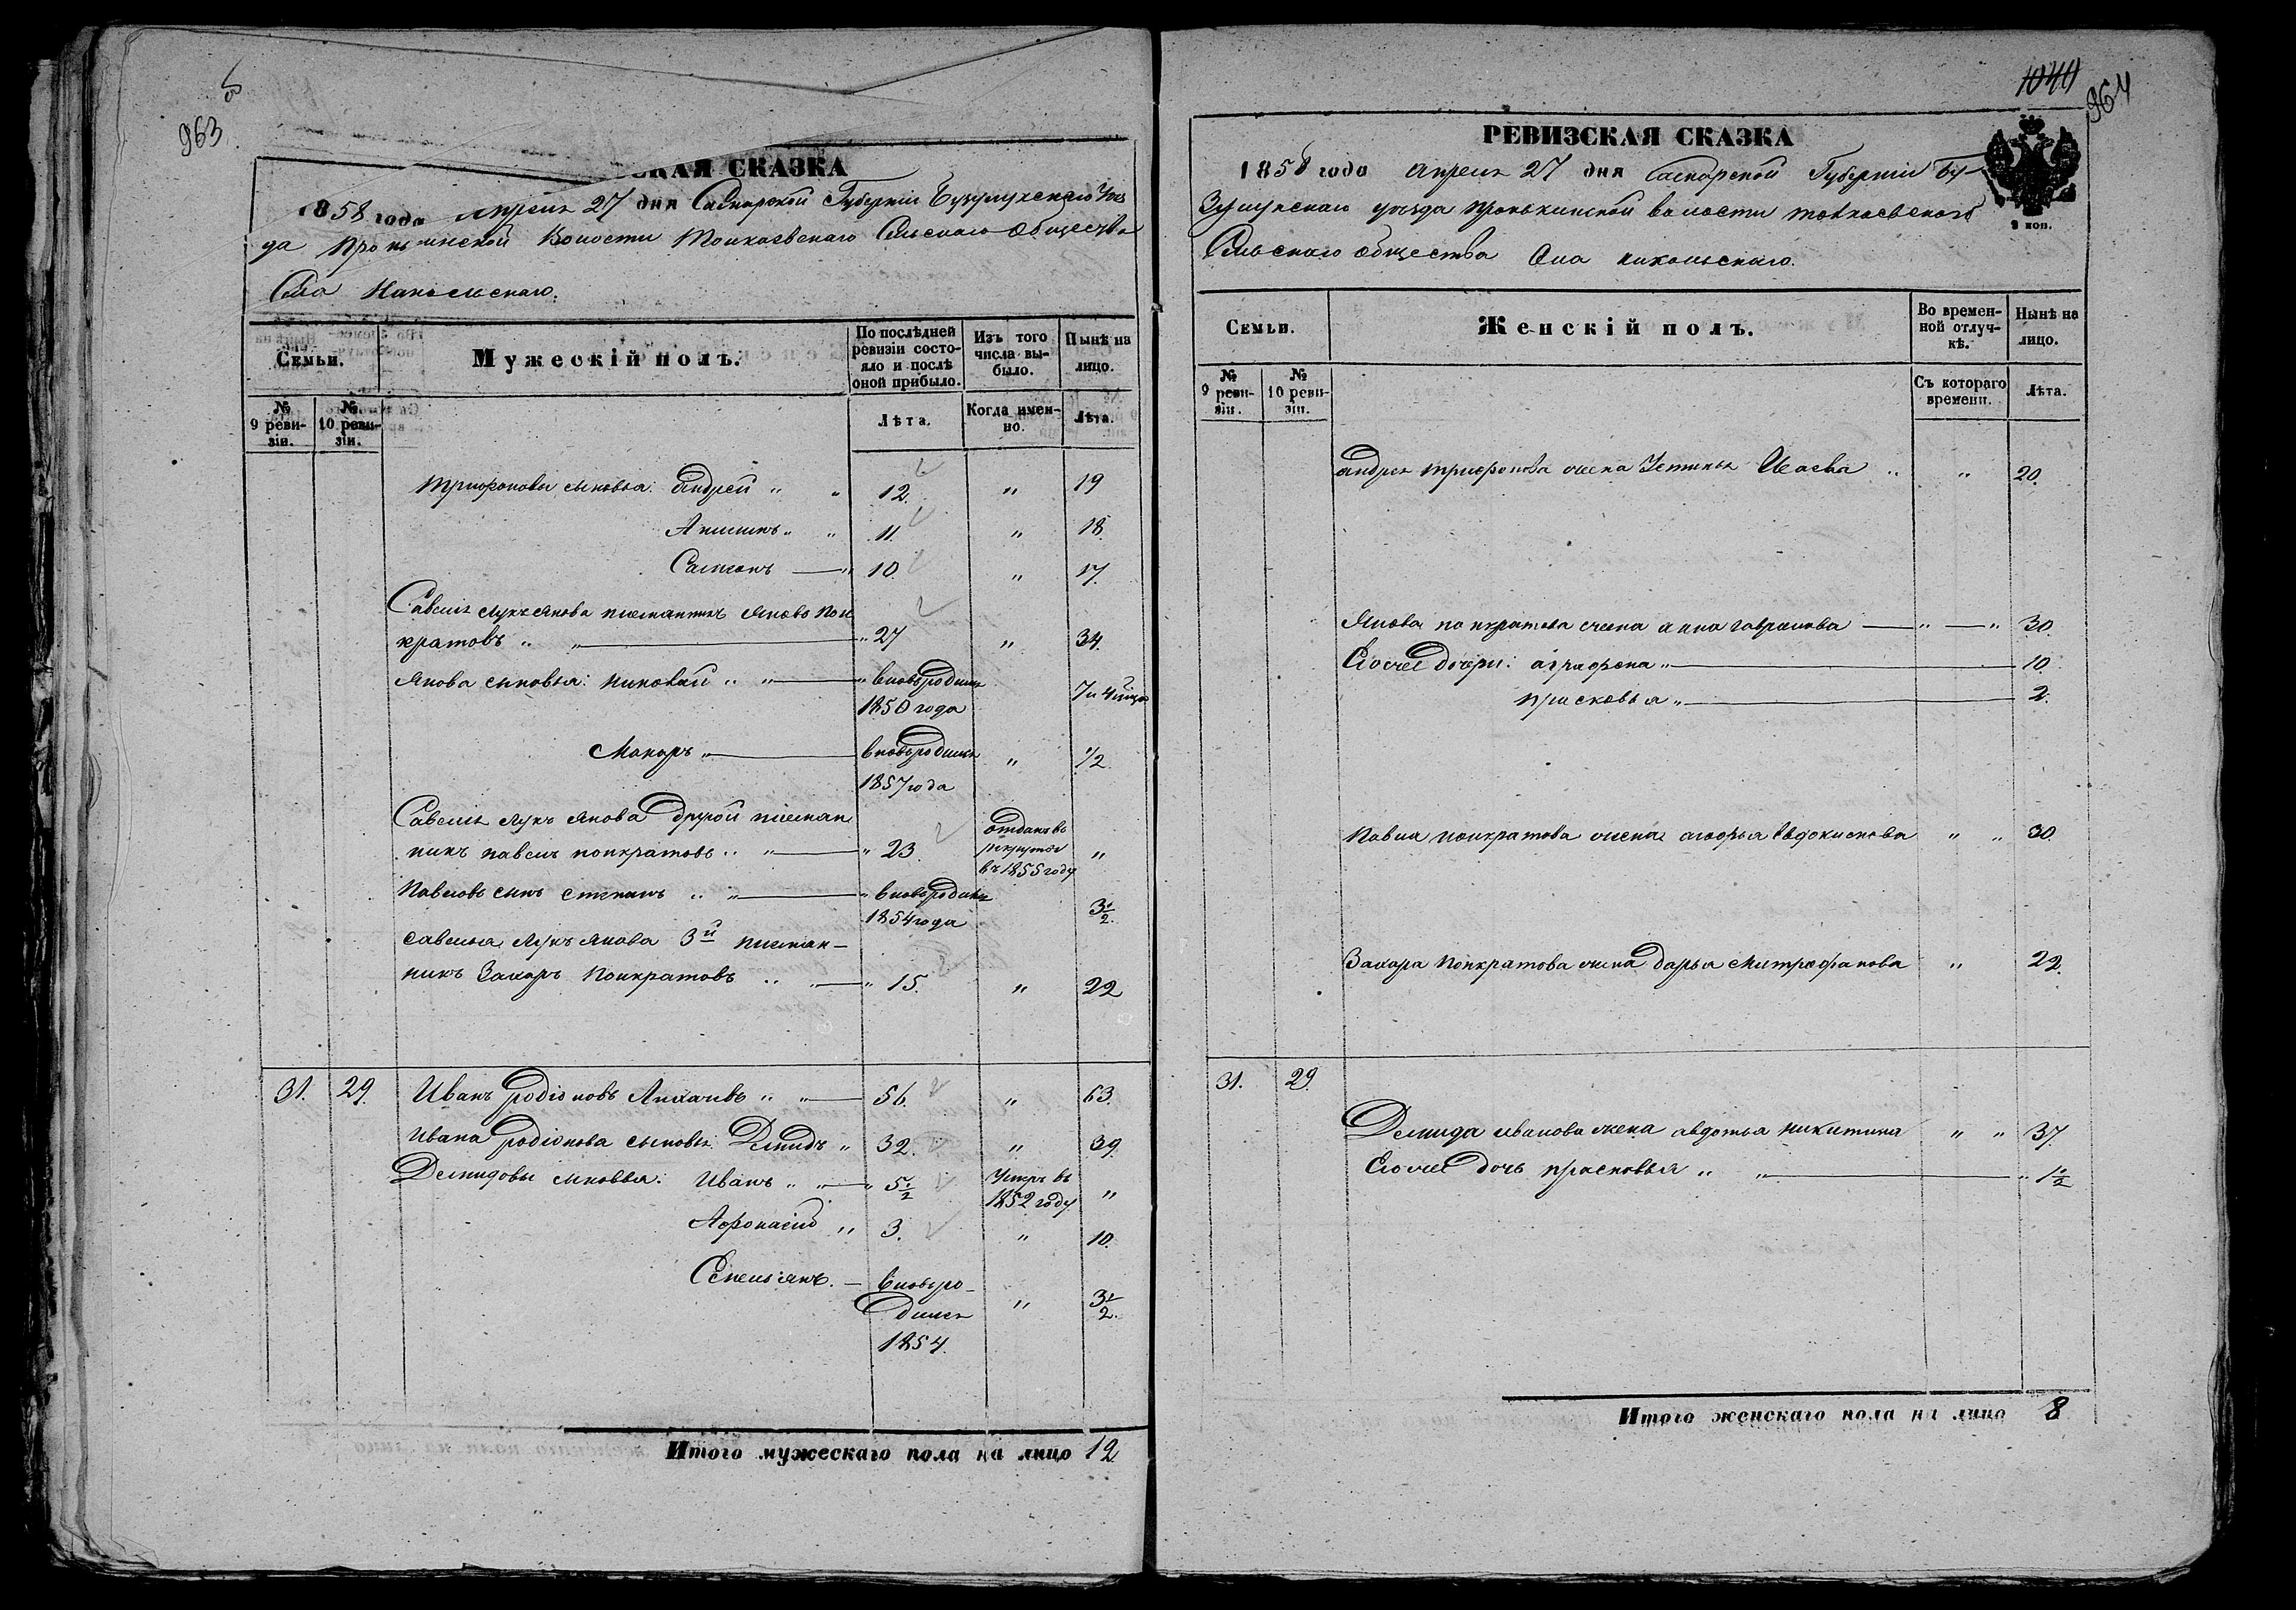 963
СКАЯ СКАЗКА
1858 года Апреля 27 дня Самарской Губерніи Бузулукскаго Уез
да Пронькинской Волости Толкаевскаго Сельскаго Общества
Села Никольскаго.
Семьи.
Мужескій полъ.
По послѣдней ревизіи состояло и послѣ оной прибыло.
Изъ того числа выбыло.
Нынѣ на лицо.
№ 9 ревизіи.
№ 10 ревизіи.
Лѣта.
Когда именно.
Лѣта.
Трифоновы сыновья: Андрей " " 12. " 19
Анисимъ " " 11. " 18.
Самсонъ — " 10. " 17.
Савелья Лукъянова племянникъ Яковъ Пон
кратовъ " " — " 27 " 34.
Якова сыновья: Николай " " — " вновьродился 7 и 4 мца
1850 года
Макаръ " — вновьродился " 1/2
1857 года
Савелья Лукъ янова другой племян
никъ павелъ понкратовъ " " — " 23. отданъ въ рекруты въ 1855 году "
Павловъ сынъ степанъ " " — " вновьродился 3 1/2.
1854 года
савелья Лукъ янова 3й племян-
никъ Захаръ Понкратовъ " " — " 15. " 22
31. 29. Иванъ родіоновъ " " — 56. " 63.
Ивана родіонова сыновья: Демидъ " 32. " 39.
Демидовы сыновья: Иванъ " " — " 5 1/2 Умеръ въ 1852 году "
Афонасій " 3. " 10.
— вновьро-
дился " 3 1/2.
1854.
Итого мужескаго пола на лицо 12
1040
964
РЕВИЗСКАЯ СКАЗКА
1858 года апреля 27 дня Самарской Губерніи Бу-
зулукскаго уезда пронькинской волости толкаевскаго
Сельскаго общества Села никольскаго.
9 коп.
Семьи.
Женскій полъ.
Во временной отлучкѣ.
Нынѣ на лицо.
№ 9 ревизіи.
№ 10 ревизіи.
Съ котораго времени.
Лѣта.
андрея трифонова жена Устинья Исаева " " 20.
Якова понкратова жена анна гаврилова — " — " 30.
Егоже дочери: аграфена " — 10.
прасковья " — 2.
Павла понкратова жена марья евдокимова " " 30.
Захара понкратова жена дарья митрофанова " 22.
31. 29.
Демида иванова жена авдотья никитина " " 37.
Егоже дочь прасковья " " — " 1 1/2
Итого женскаго пола на лицо 8